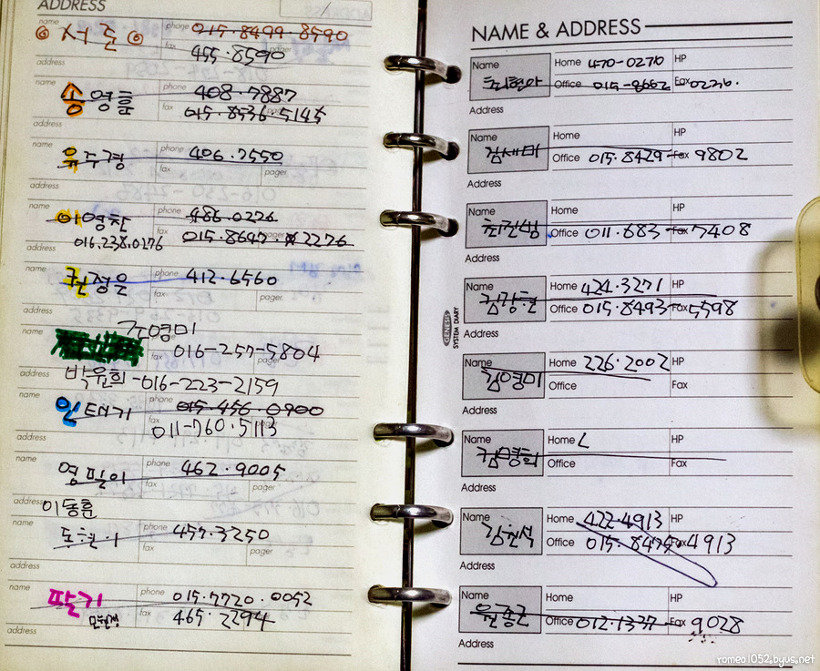 ADDRESS
name
서 준
phone 015-8499-8590
fax 455-8590
address
name
송영훈
phone 408.7887
fax 015.8536-5145
address
name
유주경
phone 406.2550
fax
pager
address
name
이영찬
phone 486.0226
016.238.0276
fax 015.8647.2276
address
name
권정은
phone 412.6560
fax
pager
address
name
조영미
016-257-5804
address
박윤희-016-223-2159
name
인태기
phone 015-456-0900
fax 011-760-5113
address
name
염필이
phone 462.9005
fax
pager
address
이동훈
name
phone 457.3250
fax
pager
address
name
딸기
phone 015.7720.0052
fax 465.2294
address
NAME & ADDRESS
Name
Home 470-0270
HP
Office 015-8662
Fax 0226.
Address
Name
김새미
Home
HP
Office 015.8429-Fax 9802
Address
Name
Home
HP
Office 011.683-Fax 7408
Address
Name
Home 424.3271
HP
Office 015.8493-Fax 5598
Address
Name
김영미
Home 226.2002
HP
Office
Fax
Address
Name
김명희
Home
HP
Office
Fax
Address
Name
Home 422.4913
HP
Office 015.8475 Fax 4913
Address
Name
Home
HP
Office 012.1337-Fax 9028
Address
GENESIS
SYSTEM DIARY
romeo1052.byus.net